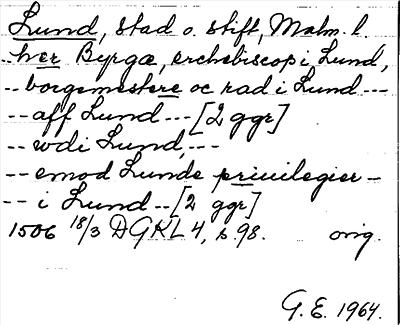 Lund, stad o. stift, Malm. l.
-- her Byrgæ, erchebiscop i Lund,
-- borgemestere oc rad i Lund ---
-- aff Lund --- [2 ggr]
-- wdi Lund, ---
-- emod Lunde priuilegier -
-- i Lund -- [2 ggr]
1506 18/3 DGKL 4, s. 98. orig.
G. E. 1964.